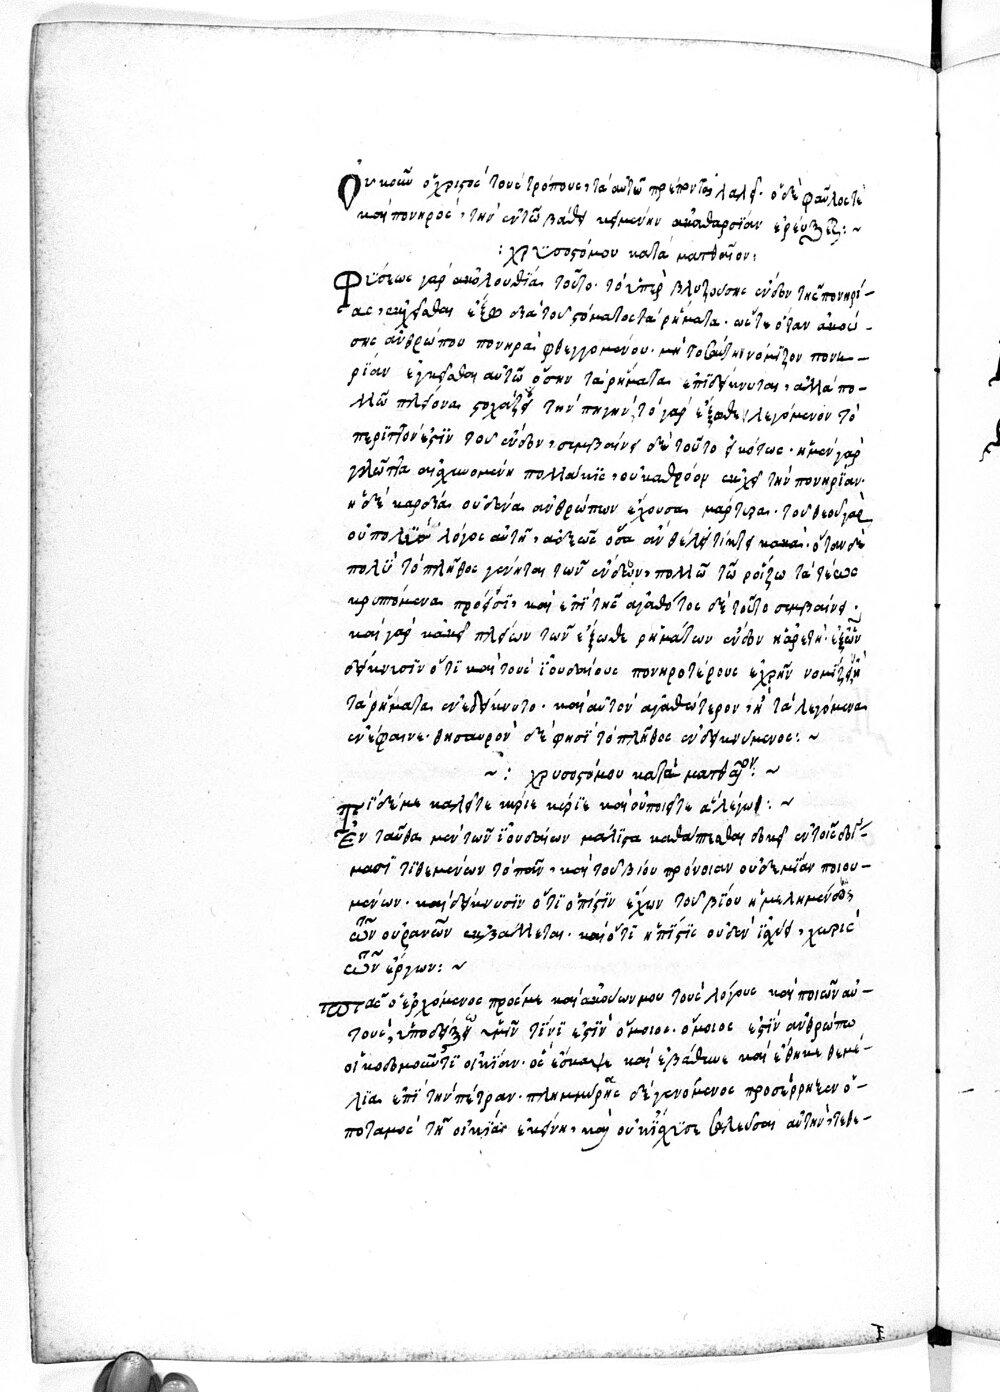 Οὐκοῦν ὁ χρηστὸς τοὺς τρόπους, τὰ αὐτῶ πρέποντα λαλεῖ· ὁ δὲ φαῦλός τε
καὶ πονηρὸς, τὴν ἐν τῶ βάθει κειμένην ἀκαθαρσίαν ἐρεύξεται: ~
: χρυσοστόμου κατὰ ματθαῖον:
Φύσεως γὰρ ἀκολουθία τοῦτο· τὸ ὑπερβλυζούσης ἔνδον τῆς πονηρί-
ας, ἐκχεῖσθαι ἔξω διὰ τοῦ στόματος τὰ ρήματα· ὥστε ὅταν ἀκού-
σης ἀνθρώπου πονηρὰ φθεγγομένου· μὴ τοσαύτην νόμιζον πονη-
ρίαν ἐγκεῖσθαι αὐτῶ ὅσην τὰ ρήματα ἐπιδείκνυται, ἀλλὰ πο-
λλῶ πλείονα στοχάζου τὴν πηγὴν, τὸ γὰρ ἔξωθεν λεγόμενον τὸ
περιττόν ἐστιν τοῦ ἔνδον, συμβαίνει δὲ τοῦτο εἰκότως· ἡ μὲν γὰρ
γλῶττα αἰσχυνομένη πολλάκις, οὐκ ἀθρόον ἐκχεῖ τὴν πονηρίαν·
ἡ δὲ καρδία οὐδένα ἀνθρώπων ἔχουσα μάρτυρα· τοῦ θεοῦ γὰρ
οὐ πολὺς λόγος αὐτῆ, ἀδεῶς ὅσα ἂν θέλει τίκτει κακά· ὅταν δὲ
πολὺ τὸ πλῆθος γένηται τῶν ἔνδον, πολλῶ τῶ ροίζω τὰ τέως
κρυπτόμενα πρόεισι, καὶ ἐπὶ τῆς ἀγαθότητος δὲ τοῦτο συμβαίνει·
καὶ γὰρ κἀκεῖ πλείων τῶν ἔξωθεν ρημάτων ἔνδον ἡ ἀρετή· ἐξ ὧν
δείκνυσιν ὅτι καὶ τοὺς ἰουδαίους πονηροτέρους ἐχρῆν νομίζειν ἢ
τὰ ρήματα ἐνεδείκνυτο· καὶ αὐτὸν ἀγαθώτερον, ἢ τὰ λεγόμενα
ἐνέφαινε· θησαυρὸν δέ φησι τὸ πλῆθος ἐνδεικνύμενος: ~
~ : χρυσοστόμου κατὰ ματθαῖον: ~
Τί δέ με καλεῖτε κύριε κύριε καὶ οὐ ποιεῖτε ἃ λέγω: ~
Ἐνταῦθα μὲν τῶν ἰουδαίων μάλιστα καθάπτεσθαι δοκεῖ ἐν τοῖς δόγ-
μασι τιθεμένων τὸ πᾶν, καὶ τοῦ βίου πρόνοιαν οὐδεμίαν ποιου-
μένων· καὶ δείκνυσιν ὅτι ὁ πίστιν ἔχων τοῦ βίου ἠμελημένος,
τῶν οὐρανῶν ἐκβάλλεται· καὶ ὅτι ἡ πίστις οὐδὲν ἰσχύει, χωρὶς
τῶν ἔργων: ~
Πᾶς ὁ ἐρχόμενος πρός με καὶ ἀκούων μου τοὺς λόγους καὶ ποιῶν αὐ-
τοὺς, ὑποδείξω ὑμῖν τίνι ἐστὶν ὅμοιος· ὅμοιος ἐστὶν ἀνθρώπω
οἰκοδομοῦντι οἰκίαν· ὃς ἔσκαψε καὶ ἐβάθυνε καὶ ἔθηκε θεμέ-
λια ἐπὶ τὴν πέτραν· πλημμύρης δὲ γενομένης προσέρρηξεν ὁ
ποταμὸς τῆ οἰκία ἐκείνη, καὶ οὐκ ἴσχυσε σαλεῦσαι αὐτὴν, τεθε-